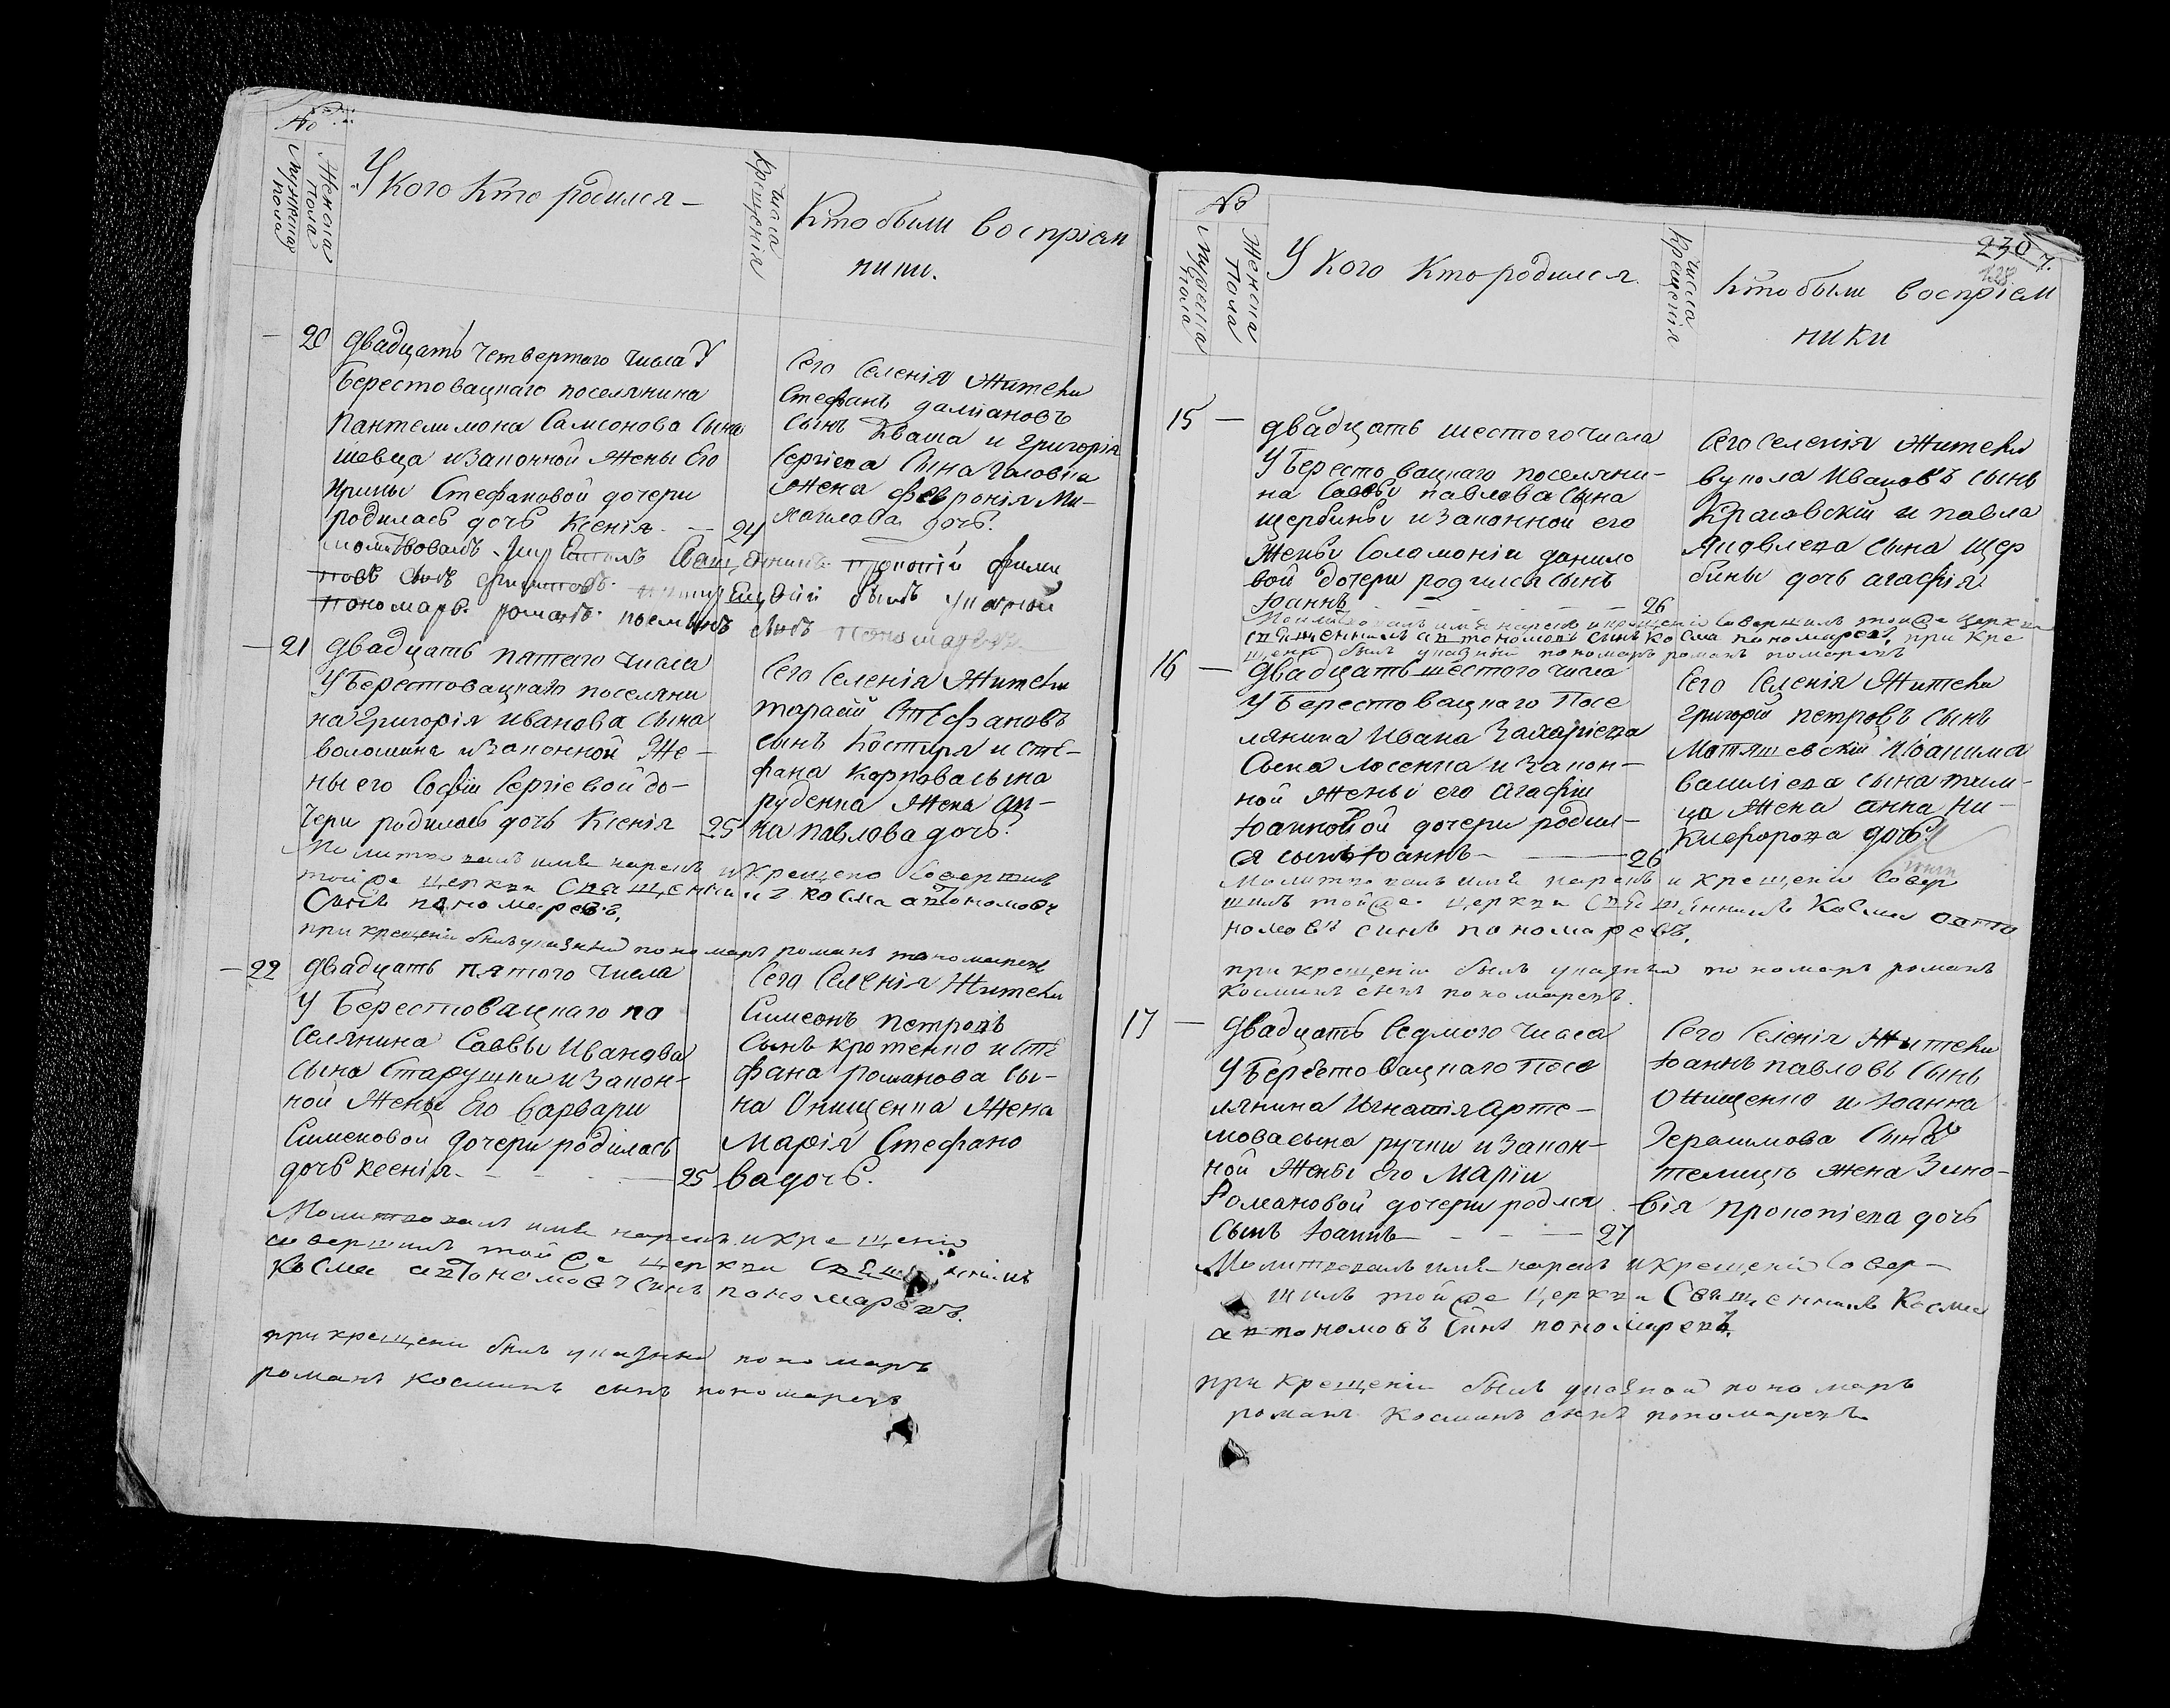 №
Мужеска пола
Женска Пола
У кого Кто родился
Числа Крещенія
Кто были воспріем
ники.
20
двадцать четвертого числа У
Берестовацкаго поселянина
Пантелимона Самсонова Сына
шевца и Законной Жены Его
Ирины Стефановой дочери
родилась дочь Ксенія
24
Сего Селенія Жители
Стефанъ
сынъ Кваша и Григорія
Сергіева Сына Головка
Жена Февронія Ми-
хаилова дочь.
сынъ
пономарь романъ
21
двадцать пятаго числа
У Берестовацкаго поселяни
на Григорія Иванова Сына
волошина и Законной Же-
ны его Софіи Сергіевой до-
чери родилась дочь Ксенія
25
Сего Селенія Жители
тарасій Стефановъ
сынъ Костыря и Сте-
фана Карпова сына
руденка Жена Ан-
на павлова дочь.
Молитвовалъ имя нарекъ и Крещено Совершилъ
той же церкви Священникъ Косма автономовъ
Сынъ пономаревъ.
при крещеніи былъ указный пономарь романъ пономаревъ
22
двадцать пятого числа
У Берестовацкаго по
селянина Саввы Иванова
сына Старушки и Закон-
ной Жены Его Варвары
Сименовой дочери родилась
дочь ксенія
25
Сего Селенія Жители
Симеонъ петровъ
Сынъ кротенко и Сте
фана романова Сы-
на Онищенка Жена
Марія Стефано
ва дочь.
Молитвовалъ имя нарекъ и крещеніе
совершилъ той же церкви Священникъ
Косма автономовъ Синъ пономаревъ.
при крещеніи былъ указный пономарь
романъ косминъ сынъ пономаревъ
230
7.
128
№
Мужеска пола
Женска Пола
У Кого Кто родился
Числа Крещенія
Кто были воспріем
ники
15
двадцать шестого числа
У Берестовацкаго поселяни-
на Саввы павлова Сына
щербины и Законной его
Жены Соломоніи данило
вой дочери родился сынъ
Іоаннъ
26
Сего Селенія Жители
вукола Ивановъ сынъ
Красовскій и павла
Яковлева сына Щер
бины дочь агафія
Молитвовалъ имя нарекъ и крещеніе Совершилъ той же церкви
священникъ автономовъ сынъ Косма пономаревъ, при кре
щеніи былъ указный пономарь романъ пономаревъ
16
двадцать шестого числа
У Берестовацкаго Посе
лянина Ивана Захаріева
Сына Лосенка и Закон-
ной Жены его Агафіи
Іоанновой дочери родил-
ся сынъ Іоаннъ
26
Сего Селенія Жители
Григорій петровъ сынъ
Матяшевскій и Іоакима
василіева сына тим-
ца Жена анна Ни-
кифорова дочь
Молитвовалъ имя нарекъ и крещеніе Совер
шилъ той же церкви Священникъ Косма авто
номовъ синъ пономаревъ.
при крещеніи былъ указный пономарь романъ
Косминъ сынъ пономаревъ.
17
двадцать Седмого числа
У Берестовацкаго Посе
лянина Игнатія Арте-
мова сына ручки и Закон-
ной Жены Его Маріи
Романовой дочери родися
Сынъ Іоаннъ
27
Сего Селенія Жители
Іоаннъ павловъ Сынъ
Онищенко и Іоанна
Герасимова Сына
телицъ Жена Зино-
вія Прокопіева дочь
Молитвовалъ имя нарекъ и крещеніе Совер-
шилъ той же церкви Священникъ Косма
автономовъ Синъ пономаревъ,
при крещеніи былъ указной пономарь
романъ Косминъ сынъ пономаревъ